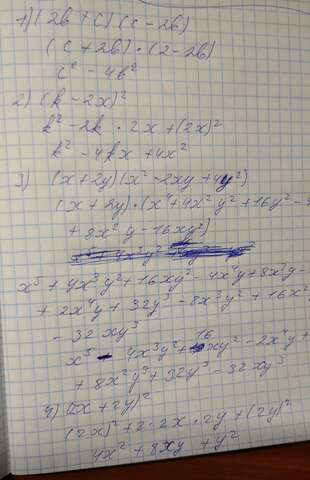 1) (2b + c)(c - 2b)
(c + 2b) · (2 - 2b)
c² - 4b²
2) (k - 2x)²
k² - 2k · 2x + (2x)²
k² - 4kx + 4x²
3) (x + 2y)(x² - 2xy + 4y²)
(x + 2y) · (x⁴ + 4x²y² + 16y² -
+ 8x²y - 16xy²)
x⁵ + 4x³y² + 16xy² - 4x⁴y + 8x³y -
+ 2x⁴y + 32y³ - 8x³y² + 16x²
- 32xy³
x⁵ - 4x³y² + 16xy² - 2x⁴y +
+ 8x²y³ + 32y³ - 32xy³
4) (2x + 2y)²
(2x)² + 2 · 2x · 2y + (2y)²
4x² + 8xy + y²